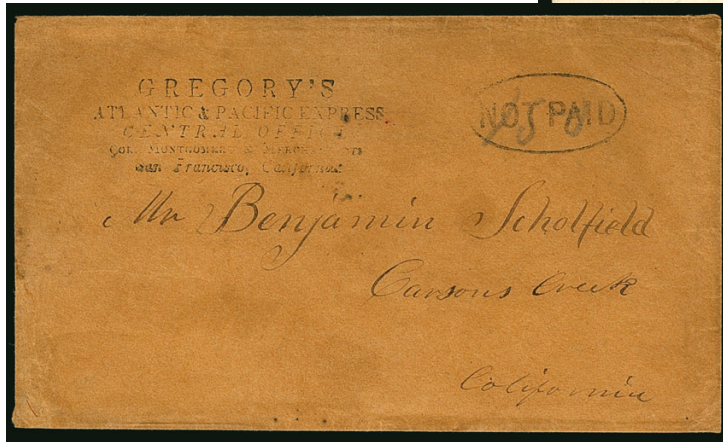 GREGORY'S
ATLANTIC & PACIFIC EXPRESS
CENTRAL OFFICE
COR. MONTGOMERY & MERCHANT STS
San Francisco, California.
NOT PAID
Mr Benjamin Scholfield
Carsons Creek
California